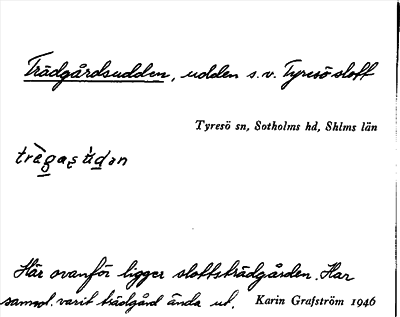 Trädgårdsudden, udden s.v. Tyresö slott
Tyresö sn, Sotholms hd, Shlms län
trègas ùdən
Här ovanför ligger slottsträdgården. Har
sannol. varit trädgård ända ut. Karin Grafström 1946